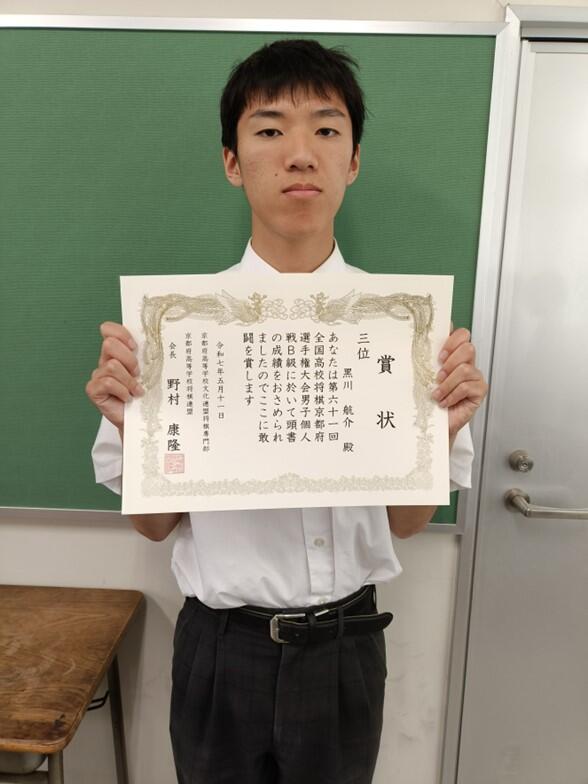 賞状
三位
黒川 航介 殿
あなたは第六十一回
全国高校将棋京都府
選手権大会男子個人
戦B級に於いて頭書
の成績をおさめられ
ましたのでここに敢
闘を賞します
令和七年五月十一日
京都府高等学校文化連盟将棋専門部
京都府高等学校将棋連盟
会長 野村 康隆